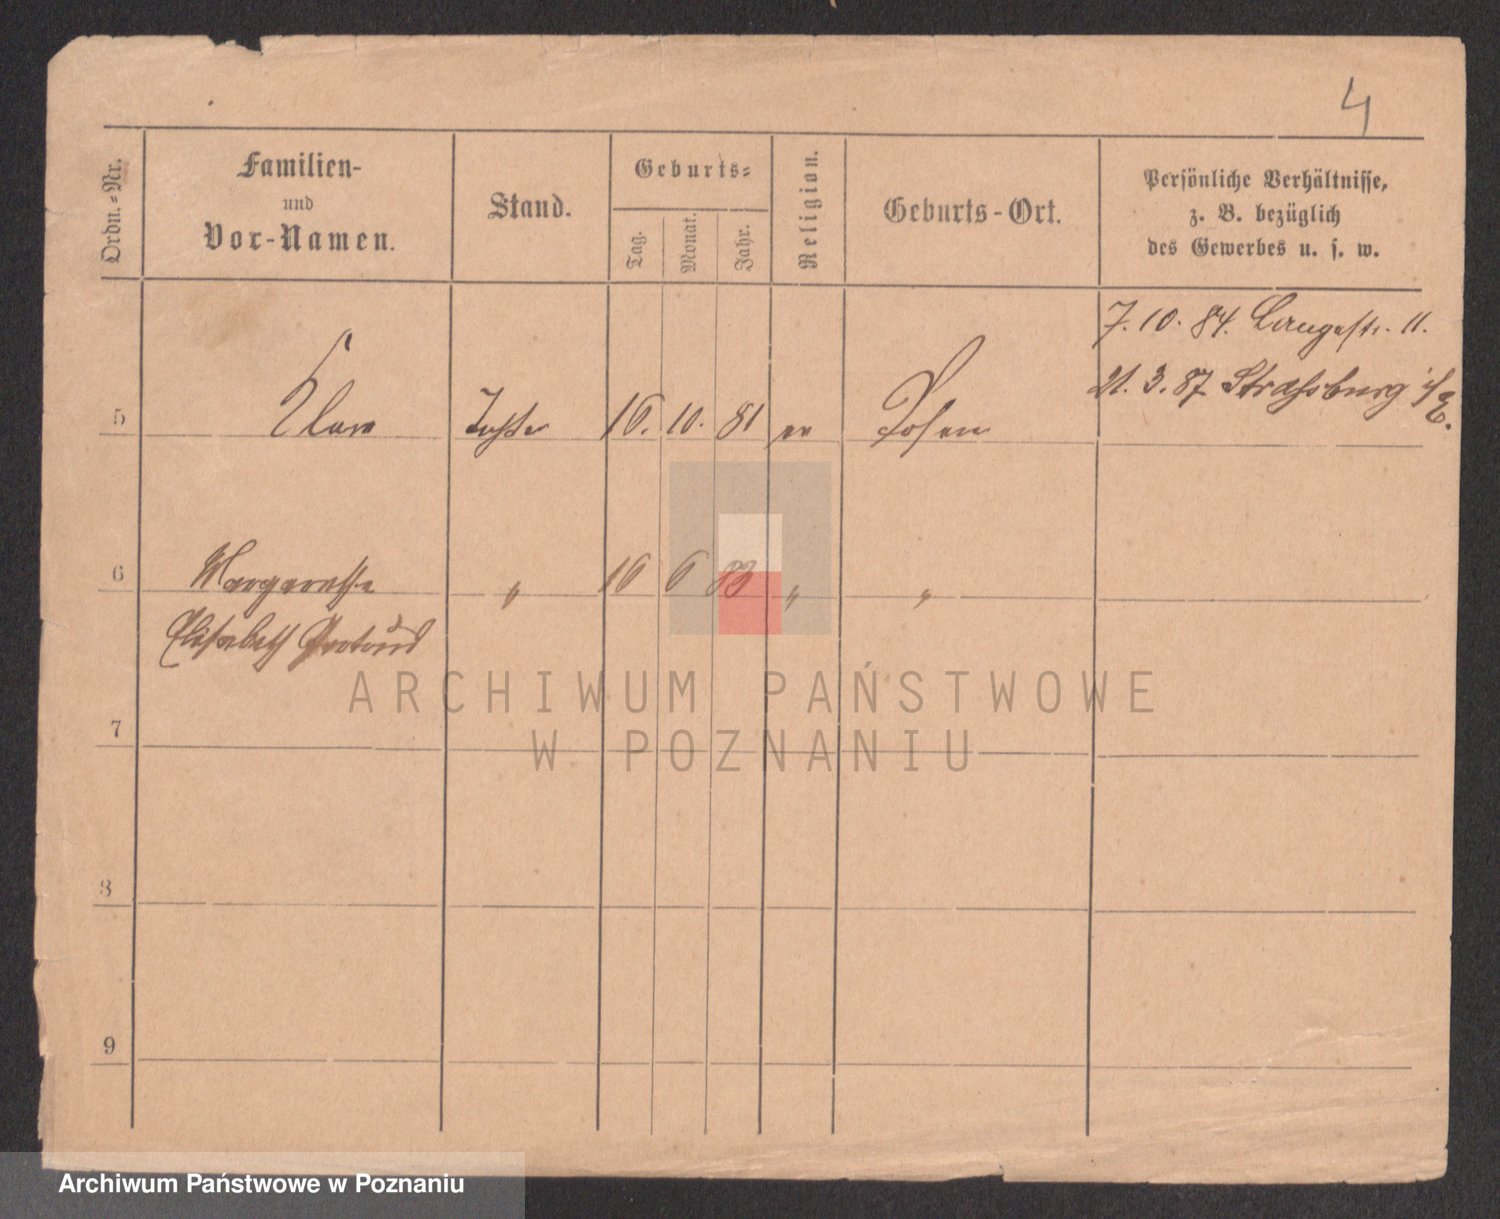 4
Ordn.-Nr.
Familien-
und
Vor-Namen.
Stand.
Geburts-
Tag.
Monat.
Jahr.
Religion.
Geburts-Ort.
Persönliche Verhältnisse,
z. B. bezüglich
des Gewerbes u. s. w.
7. 10. 84. Langestr. 11.
21. 3. 87 Straßburg i/E.
5 Clara Tochter 16. 10. 81 ev Posen
6 Margarethe " 16 6 83 " "
Elisabeth Gertrud
7
8
9
ARCHIWUM PAŃSTWOWE
W POZNANIU
Archiwum Państwowe w Poznaniu